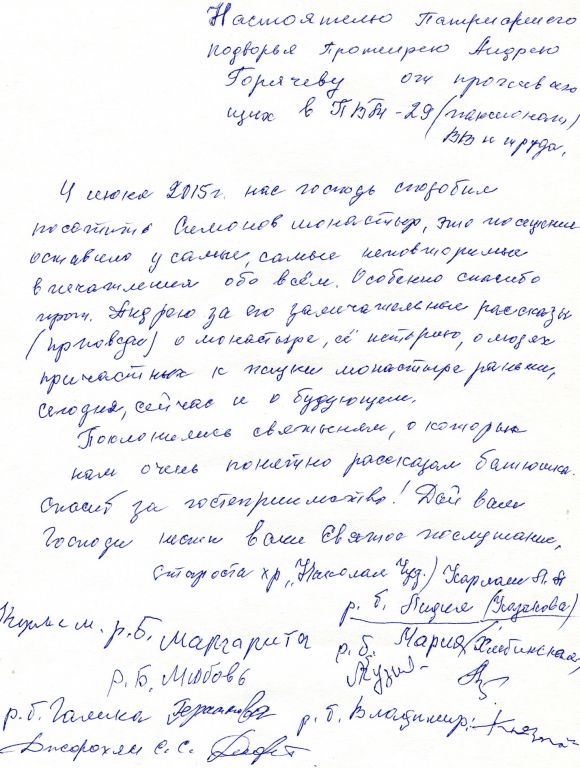 Настоятелю Патриаршего
подворья Протоиерею Андрею
Горячеву от проживаю
щих в ПВТ-29 (пансионат)
ВВ и труда,
4 июня 2015г. нас господь сподобил
посетить Симонов монастырь, это посещение
оставило у самые, самые неповторимые
впечатления обо всём. Особенно спасибо
прот. Андрею за его замечательные рассказы
(проповеди) о монастыре, её историю, о людях
причастных к жизни монастыря раньше,
сегодня, сейчас и о будующем.
Поклонились святыням, о которых
нам очень понятно рассказал батюшка.
Спасиб за гостеприимство! Дай вам
Господи нести ваше Святое послушание,
Староста хр „Николая Чуд.)
р. б. Лидия (Казакова)
р. Б. Маргарита р. б. Мария
р. Б. Любовь
р. б. Галина р. б. Владимир
С. С.